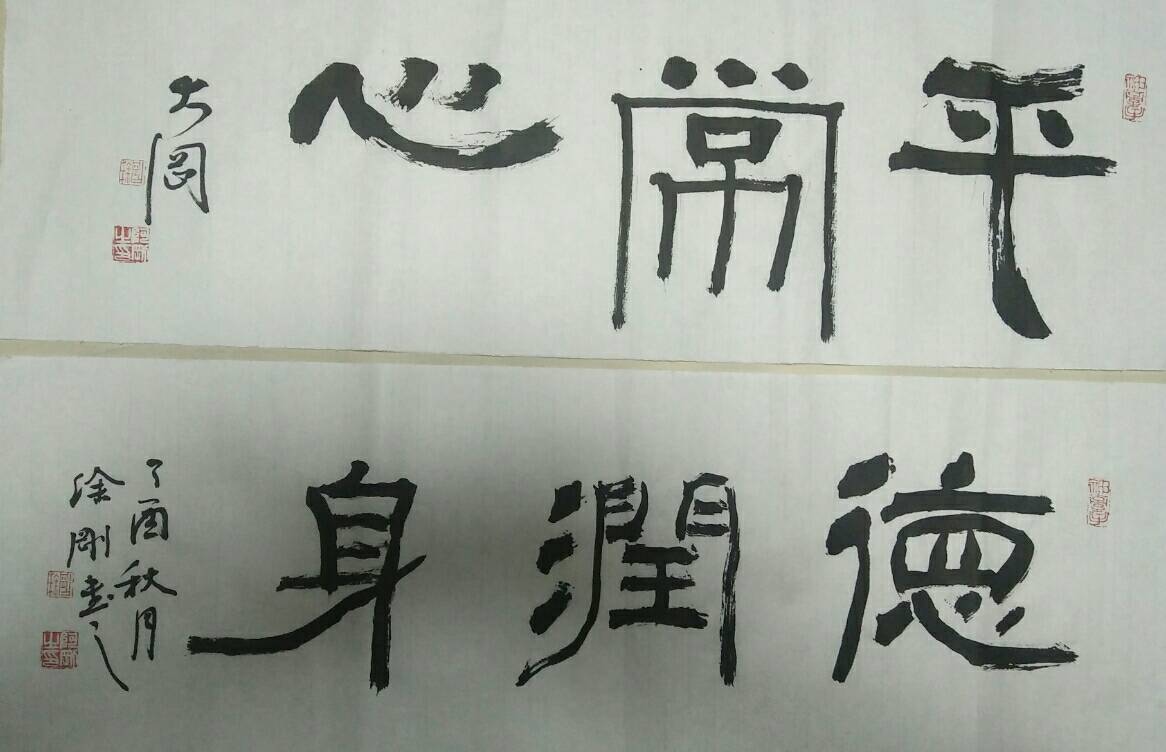 平常心
大岡
德潤身
丁酉秋月
徐剛書之